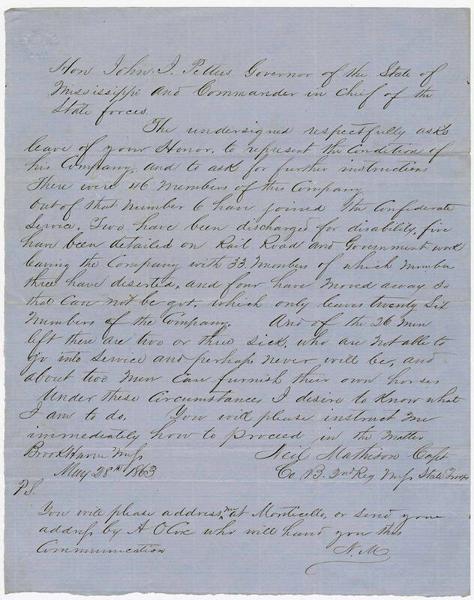 Hon John J. Pettus Governor of the State of
Mississippi and Commander in Chief of the
State forces.
The undersigned respectfully asks
leave of your Honor, to represent the Condition of
his Company, and to ask for further instructions
There were 46 Members of this Company
out of that Number 6 have joined the Confederate
Service. Two have been discharged for disability, five
have been detailed on Rail Road and Government work
leaving the Company with 33 Members of which Number
three have deserted, and four have moved away so
that Can not be got, which only leaves twenty Six
Members of the Company. And of the 26 men
left there are two or three sick, who are not able to
go into Service and perhaps never will be, and
about two men Can furnish their own horses
Under these Circumstances I desire to Know what
I am to do. You will please instruct me
immediately how to Proceed in the Matter
Brook Haven Miss Ned Mathison Capt
May 28th 1863 Co. B. 2nd Reg Miss State Troops
P.S.
You will please address me at Monticello, or send your
address by A O Cox who will hand you this
Communication N. M